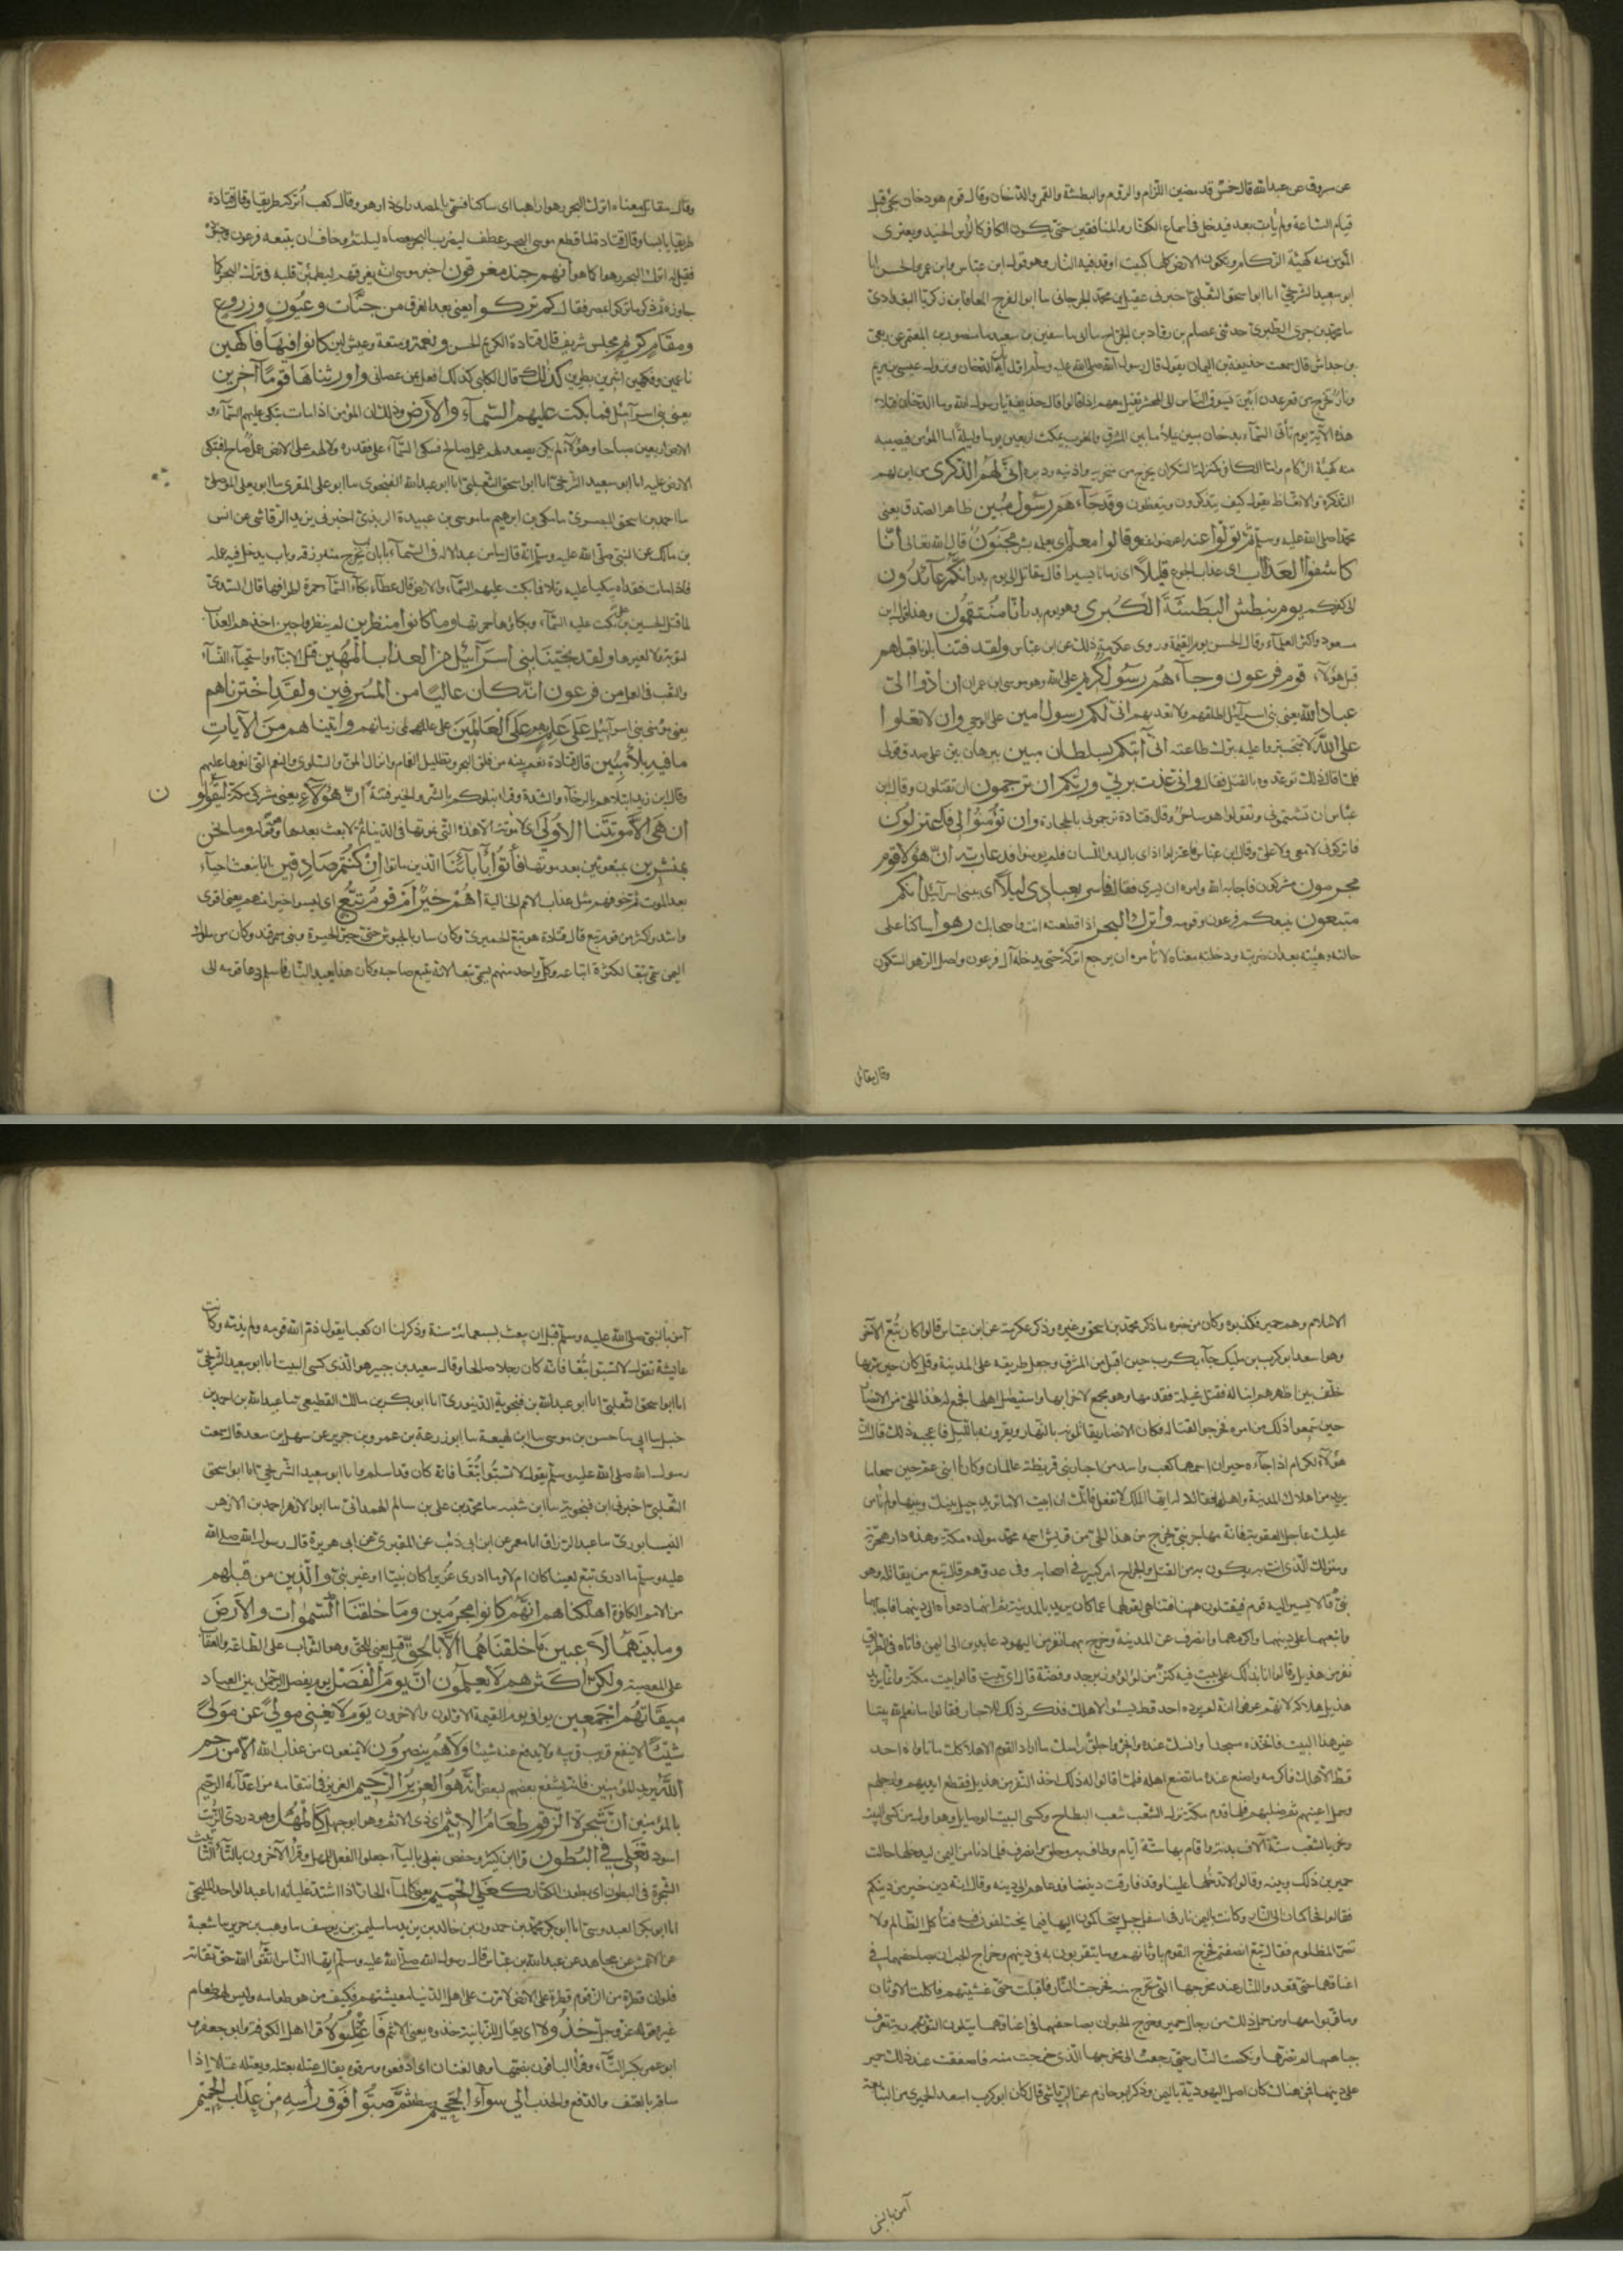 عن مسروق عن عبدالله قال خمس قد مضين اللزام والروم والبطشة والقمر والدخان وقال قوم هو دخان يجئ قبل
قيام الساعة ولم يأت بعد فيدخل فى اسماع الكفار والمنافقين حتى يكون الكافر كالرأس الحنيذ ويعترى
المؤمن منه كهيئة الزكام وتكون الارض كلها كبيت اوقد فيه النار وهو قول ابن عباس وابن عمر والحسن انا
ابو سعيد الشريحى انا ابو اسحق الثعلبى اخبرنى عقيل بن محمد الجرجانى ما ابو الفرج المعافا بن زكريا البغدادى
ما محمد بن جرير الطبرى حدثنى عصام بن رواد بن الجراح ما ابى ما سفين بن سعيد ما منصور بن المعتمر عن ربعى
بن حراش قال سمعت حذيفة بن اليمان يقول قال رسول الله صلى الله عليه وسلم اول الآيات الدخان ونزول عيسى بن مريم
ونار تخرج من قعر عدن ابين تسوق الناس الى المحشر تقيل معهم اذا قالوا قال حذيفة يا رسول الله وما الدخان فتلا
هذه الآية يوم تأتى السماء بدخان مبين يملأ ما بين المشرق والمغرب يمكث اربعين يوما وليلة اما المؤمن فيصيبه
منه كهيئة الزكام واما الكافر كمنزلة السكران يخرج من منخريه واذنيه ودبره انى لهم الذكرى من اين لهم
التذكرة والاتعاظ يقول كيف يتذكرون ويتعظون وقد جآءهم رسول مبين ظاهر الصدق يعنى
محمدا صلى الله عليه وسلم ثم تولوا عنه اعرضوا عنه وقالوا معلم اى يعلمه بشر مجنون قال الله تعالى انا
كاشفوا العذاب اى عذاب الجوع قليلا اى زمانا يسيرا قال مقاتل الى يوم بدر انكم عآئدون
الى كفركم يوم نبطش البطشة الكبرى وهو يوم بدر انا منتقمون وهذا قول ابن
مسعود واكثر العلمآء وقال الحسن يوم القيمة وروى عكرمة ذلك عن ابن عباس ولقد فتنا بلونا قبلهم
قبل هؤلاء قوم فرعون وجآءهم رسول كريم على الله وهو موسى بن عمران ان ادوا الى
عباد الله يعنى بنى اسرآئيل اطلقهم ولا تعذبهم انى لكم رسول امين على الوحى وان لا تعلوا
على الله لا تتجبروا عليه بترك طاعته انى آتيكم بسلطان مبين ببرهان بين على صدق قولى
فلما قال ذلك توعدوه بالقتل فقال وانى عذت بربى وربكم ان ترجمون ان تقتلون وقال ابن
عباس ان تشتمونى وتقولوا هو ساحر وقال قتادة ترجمونى بالحجارة وان لم تؤمنوا لى فاعتزلون
فاتركونى لا معى ولا على وقال ابن عباس فاعتزلوا اذاى باليد واللسان فلم يؤمنوا فدعا ربه ان هؤلاء قوم
مجرمون مشركون فاجابه الله وامره ان يسرى فقال فاسر بعبادى ليلا اى ببنى اسرآئيل انكم
متبعون يتبعكم فرعون وقومه واترك البحر اذا قطعته انت واصحابك رهوا ساكنا على
حالته وهيئته بعد ان ضربته ودخلته معناه لا تأمره ان يرجع اتركه حتى يدخله آل فرعون واصل الرهو السكون
وقال مقاتل
وقال مقاتل معناه اترك البحر رهوا راهبا اى ساكنا فسمى بالمصدر اى ذا رهو وقال كعب اتركه طريقا وقال قتادة
طريقا يابسا وقال قتادة لما قطع موسى البحر عطف ليضرب البحر بعصاه ليلتئم وخاف ان يتبعه فرعون وجنوده
فقيل له اترك البحر رهوا كما هو انهم جند مغرقون اخبر موسى انه يغرقهم ليطمئن قلبه فى ترك البحر كما
جاوزه ثم ذكر ما تركوا بمصر فقال كم تركوا يعنى بعد الغرق من جنات وعيون وزروع
ومقام كريم مجلس شريف قال قتادة الكريم الحسن ونعمة ومتعة وعيش لين كانوا فيها فاكهين
ناعمين وفكهين اشرين بطرين كذلك قال الكلبى كذلك افعل بمن عصانى واورثناها قوما آخرين
يعنى بنى اسرآئيل فما بكت عليهم السمآء والارض وذلك ان المؤمن اذا مات تبكى عليه السمآء و
الارض اربعين صباحا وهؤلاء لم يكن يصعد لهم عمل صالح فتبكى السمآء على فقده ولا لهم على الارض عمل صالح فتبكى
الارض عليه انا ابو سعيد الشريحى انا ابو اسحق الثعلبى انا ابو عبدالله الفنجوى ما ابو على المقرى ما ابو يعلى الموصلى
ما احمد بن اسحق البصرى ما مكى بن ابرهيم ما موسى بن عبيدة الربذى اخبرنى يزيد الرقاشى عن انس
بن مالك عن النبى صلى الله عليه وسلم انه قال ما من عبد الا له فى السمآء بابان باب يخرج منه رزقه وباب يدخل فيه عمله
فاذا مات فقداه وبكيا عليه وتلا فما بكت عليهم السمآء والارض قال عطآء بكآء السمآء حمرة اطرافها قال السدى
لما قتل الحسين بن على بكت عليه السمآء وبكاؤها حمرتها وما كانوا منظرين لم ينظروا حين اخذهم العذاب
لتوبة ولا لغيرها ولقد نجينا بنى اسرآئيل من العذاب المهين قتل الابنآء واستحيآء النسآء
والتعب فى العمل من فرعون انه كان عاليا من المسرفين ولقد اخترناهم
يعنى مؤمنى بنى اسرآئيل على علم بهم على العالمين على عالمى زمانهم وآتيناهم من الآيات
ما فيه بلاء مبين قال قتادة نعم بينه من فلق البحر وتظليل الغمام وانزال المن والسلوى والنعم التى انعمها عليهم
وقال ابن زيد ابتلاهم بالرخآء والشدة وقرا ونبلوكم بالشر والخير فتنة ان هؤلاء يعنى مشركى مكة ليقولون
ان هى الا موتتنا الاولى اى لا موتة الا هذه التى نموتها فى الدنيا ثم لا بعث بعدها وهو قوله وما نحن
بمنشرين بمبعوثين بعد موتتنا فأتوا بآبآئنا الذين ماتوا ان كنتم صادقين انا نبعث احيآء
بعد الموت ثم خوفهم مثل عذاب الامم الخالية اهم خير ام قوم تبع اى ليسوا خيرا منهم يعنى اقوى
واشد واكثر من قوم تبع قال قتادة هو تبع الحميرى وكان سار بالجيوش حتى حير الحيرة وبنى سمرقند وكان من ملوك
اليمن سمى تبعا لكثرة اتباعه وكل واحد منهم يسمى تبعا لانه يتبع صاحبه وكان هذا يعبد النار فاسلم ودعا قومه الى
الاسلام وهم حمير فكذبوه وكان من خبره ما ذكر محمد بن اسحق وغيره وذكر عكرمة عن ابن عباس قالوا كان تبع الآخر
وهو اسعد ابو كرب بن مليك جآء بكرب حين اقبل من المشرق وجعل طريقه على المدينة وقد كان حين مر بها
خلف بين اظهرهم ابنا له فقتل غيلة فقدمها وهو مجمع لاخرابها واستيصال اهلها فجمع له هذا الحى من الانصار
حين سمعوا ذلك من امره فخرجوا لقتاله فكان الانصار يقاتلونه بالنهار ويقرونه بالليل فاعجبه ذلك قال ان
هؤلاء لكرام اذا جآءه حبران اسمهما كعب واسد من احبار بنى قريظة عالمان وكانا ابنى عم حين سمعا ما
يريد من اهلاك المدينة واهلها فقالا له ايها الملك لا تفعل فانك ان ابيت الا ما تريد حيل بينك وبينها ولم نأمن
عليك عاجل العقوبة فانه مهاجر نبى يخرج من هذا الحى من قريش اسمه محمد مولده مكة وهذه دار هجرته
ومنزلك الذى انت به يكون به من القتل والجراح امر كبير فى اصحابه وفى عدوهم قال تبع من يقاتله وهو
نبى قالا يسير اليه قومه فيقتتلون ههنا فتناهى لقولهما عما كان يريد بالمدينة ثم انهما دعواه الى دينهما فاجابهما
واتبعهما على دينهما واكرمهما وانصرف عن المدينة وخرج بهما ونفر من اليهود عامدين الى اليمن فاتاه فى الطريق
نفر من هذيل وقالوا انا ندلك على بيت فيه كنز من لؤلؤ وزبرجد وفضة قال اى بيت قالوا بيت مكة وانما يريد
هذيل هلاكه لانهم عرفوا انه لم يرده احد قط بسوء الا هلك فذكر ذلك للاحبار فقالوا ما نعلم لله بيتا
غير هذا البيت فاتخذه مسجدا وانسك عنده وانحر واحلق راسك وما اراد القوم الا هلاكك ما ناواه احد
قط الا هلك فاكرمه واصنع عنده ما تصنع اهله فلما قالوا له ذلك اخذ النفر من هذيل فقطع ايديهم وارجلهم
وسمل اعينهم ثم صلبهم فلما قدم مكة نزل الشعب شعب البطائح وكسى البيت الوصايل وهو اول من كسى البيت
ونحر بالشعب ستة آلاف بدنة واقام بها ستة ايام وطاف به وحلق وانصرف فلما دنا من اليمن ليدخلها حالت
حمير بين ذلك وبينه وقالوا لا تدخلها علينا وقد فارقت ديننا فدعاهم الى دينه وقال انه دين خير من دينكم
فقالوا فحاكمنا الى النار وكانت باليمن نار فى اسفل جبل يتحاكمون اليها فيما يختلفون فيه فتأكل الظالم ولا
تضر المظلوم فقال تبع انصفتم فخرج القوم باوثانهم وما يتقربون به فى دينهم وخرج الحبران بمصاحفهما فى
اعناقهما حتى قعدوا للنار عند مخرجها الذى تخرج منه فخرجت النار فاقبلت حتى غشيتهم فاكلت الاوثان
وما قربوا معها ومن حمل ذلك من رجال حمير وخرج الحبران بمصاحفهما فى اعناقهما يتلون التورية تعرق
جباههما لم تضرهما ونكصت النار حتى رجعت الى مخرجها الذى خرجت منه فاصفقت عند ذلك حمير
على دينهما فمن هناك كان اصل اليهودية باليمن وذكر ابو حاتم عن الرقاشى قال كان ابو كرب اسعد الحميرى من التبابعة
آمن بالنبى
آمن بالنبى صلى الله عليه وسلم قبل ان يبعث بسبعمائة سنة وذكر لنا ان كعبا يقول ذم الله قومه ولم يذمه وكانت
عايشة تقول لا تسبوا تبعا فانه كان رجلا صالحا وقال سعيد بن جبير هو الذى كسى البيت انا ابو سعيد الشريحى
انا ابو اسحق الثعلبى انا ابو عبدالله بن فنجوية الدينورى انا ابو بكر بن مالك القطيعى ما عبدالله بن احمد بن
حنبل ما ابى ما حسن بن موسى ما ابن لهيعة ما ابو زرعة بن عمرو بن جرير عن سهل بن سعد قال سمعت
رسول الله صلى الله عليه وسلم يقول لا تسبوا تبعا فانه كان قد اسلم وانا ابو سعيد الشريحى انا ابو اسحق
الثعلبى اخبرنى ابن فنجوية ما ابن شنبه ما محمد بن على بن سالم الهمدانى ما ابو الازهر احمد بن الازهر
النيسابورى ما عبد الرزاق انا معمر عن ابن ابى ذئب عن المقبرى عن ابى هريرة قال رسول الله صلى الله
عليه وسلم ما ادرى تبع لعينا كان ام لا وما ادرى عزير اكان نبيا او غير نبى والذين من قبلهم
من الامم الكافرة اهلكناهم انهم كانوا مجرمين وما خلقنا السموات والارض
وما بينهما لاعبين ما خلقناهما الا بالحق قيل يعنى للحق وهو الثواب على الطاعة والعقاب
على المعصية ولكن اكثرهم لا يعلمون ان يوم الفصل يوم يفصل الرحمن بين العباد
ميقاتهم اجمعين يوافى يوم القيمة الاولون والآخرون يوم لا يغنى مولى عن مولى
شيئا لا ينفع قريب قريبه ولا يدفع عنه شيئا ولا هم ينصرون لا يمنعون من عذاب الله الا من رحم
الله يريد المؤمنين فانه يشفع بعضهم لبعض انه هو العزيز الرحيم العزيز فى انتقامه من اعدآئه الرحيم
بالمؤمنين ان شجرة الزقوم طعام الاثيم اى ذى الاثم وهو ابو جهل كالمهل وهو دردى الزيت
اسود تغلى فى البطون قرا ابن كثير وحفص يغلى باليآء جعلوا الفعل للمهل وقرا الآخرون بالتآء لتأنيث
الشجرة فى البطون اى بطون الكفار كغلى الحميم يعنى كالمآء الحار اذا اشتد غليانه انا عبد الواحد المليحى
انا ابو بكر العبدوسى انا ابو بكر محمد بن حمدون بن خالد بن يزيد ما سليمن بن يوسف ما وهب بن جرير ما شعبة
عن الاعمش عن مجاهد عن عبدالله بن عباس قال رسول الله صلى الله عليه وسلم ايها الناس اتقوا الله حق تقاته
فلو ان قطرة من الزقوم قطرت على الارض لامرت على اهل الدنيا معيشتهم فكيف من هو طعامه وليس لهم طعام
غيره قوله عز وجل خذوه اى يقال للزبانية خذوه يعنى الاثيم فاعتلوه قرا اهل الكوفة وابو جعفر و
ابو عمرو بكسر التآء وقرا الباقون بضمها وهما لغتان اى ادفعوه وسوقوه يقال عتله يعتله ويعتله عتلا اذا
ساقه بالعنف والدفع والجذب الى سوآء الجحيم وسطه ثم صبوا فوق رأسه من عذاب الحميم